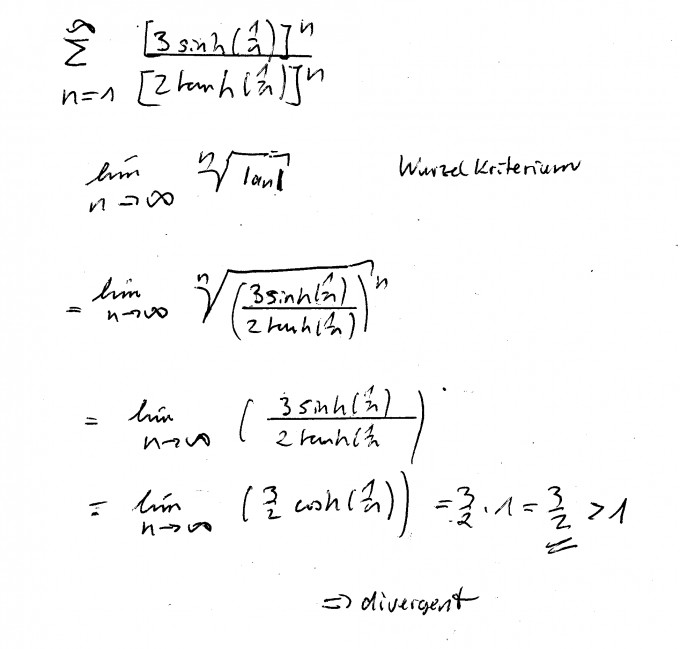 ∞∑n=1 [3 sinh(1/n)]^n / [2 tanh(1/n)]^n
lim n→∞ ⁿ√|an| Wurzelkriterium
= lim n→∞ ⁿ√(3 sinh(1/n) / 2 tanh(1/n))^n
= lim n→∞ (3 sinh(1/n) / 2 tanh(1/n)
= lim n→∞ (3/2 cosh(1/n)) = 3/2 · 1 = 3/2 > 1
⇒ divergent